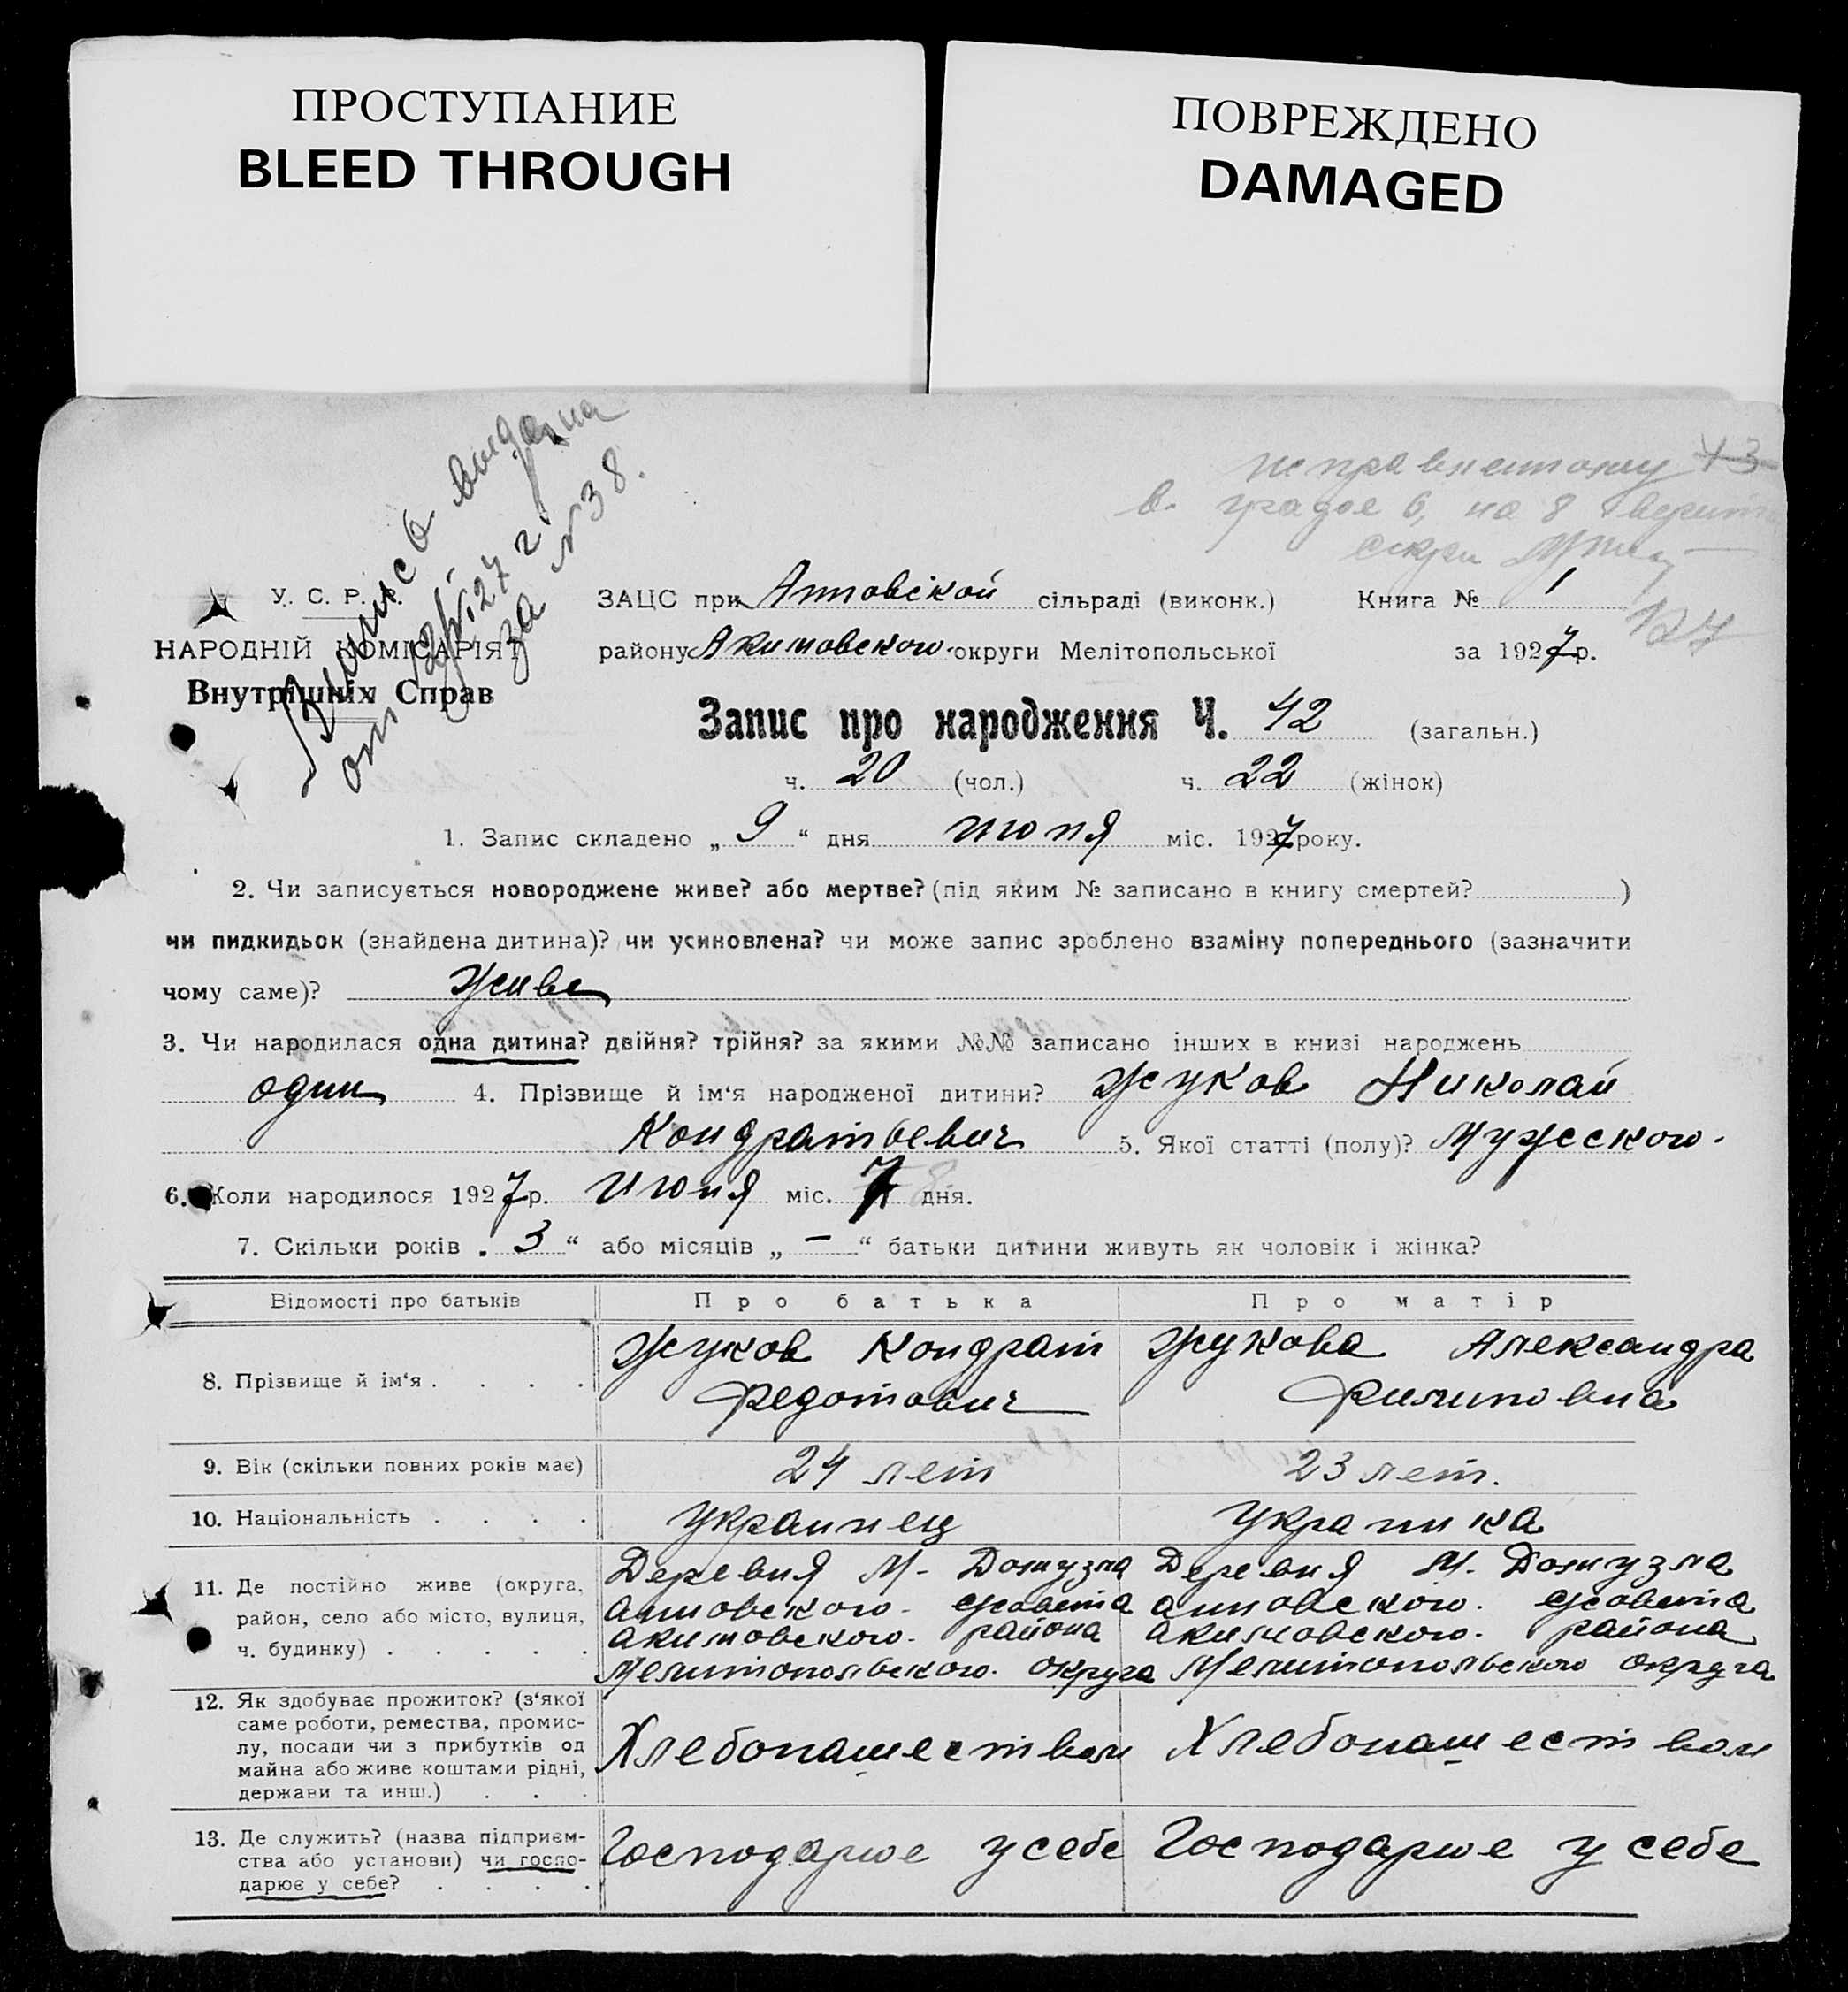 ПРОСТУПАНИЕ
BLEED THROUGH
ПОВРЕЖДЕНО
DAMAGED
Выпись выдана
от 1927 г
за № 38.
исправленому 43
в. графе 6, на 8 верить
секр
У. С. Р. Р.
НАРОДНІЙ КОМІСАРІЯТ
Внутрішніх Справ
ЗАЦС при Анновской сільраді (виконк.) Книга № 1
127
району Акимовского округи Мелітопольської за 1927 р.
Запис про народження Ч. 42 (загальн.)
ч. 20 (чол.) ч. 22 (жінок)
1. Запис складено „ 9 “ дня июня міс. 1927 року.
2. Чи записується новороджене живе? або мертве? (під яким № записано в книгу смертей? )
чи пидкидьок (знайдена дитина)? чи усиновлена? чи може запис зроблено взаміну попереднього (зазначити
чому саме)? живе
3. Чи народилася одна дитина? двійня? трійня? за якими №№ записано інших в книзі народжень
один 4. Прізвище й ім‘я народженої дитини? Жуков Николай
Кондратьевич 5. Якої статті (полу)? Мужского.
6. Коли народилося 1927 р. июня міс. 7 8 дня.
7. Скільки років „ 3 “ або місяців „ — “ батьки дитини живуть як чоловік і жінка?
Відомості про батьків Про батька Про матір
8. Прізвище й ім‘я . . . . Жуков Кондрат Жукова Александра
Федотович Филиповна
9. Вік (скільки повних років має) 24 лет 23 лет.
10. Національність . . . . Украинец Украинка
11. Де постійно живе (округа, Деревня М. Домузла Деревня М. Домузла
район, село або місто, вулиця, Анновского. сусовета Анновского. с/совета
ч. будинку) . . . . . Акимовского. района Акимовского. района
Мелитопольвского. округа Мелитопольвского округа
12. Як здобуває прожиток? (з‘якої
саме роботи, ремества, промис-
лу, посади чи з прибутків од Хлебопашеством Хлебопашеством
майна або живе коштами рідні,
держави та инш.) . . .
13. Де служить? (назва підприєм- Господарює у себе Господарює у себе
ства або установи) чи госпо-
дарює у себе? . . . .